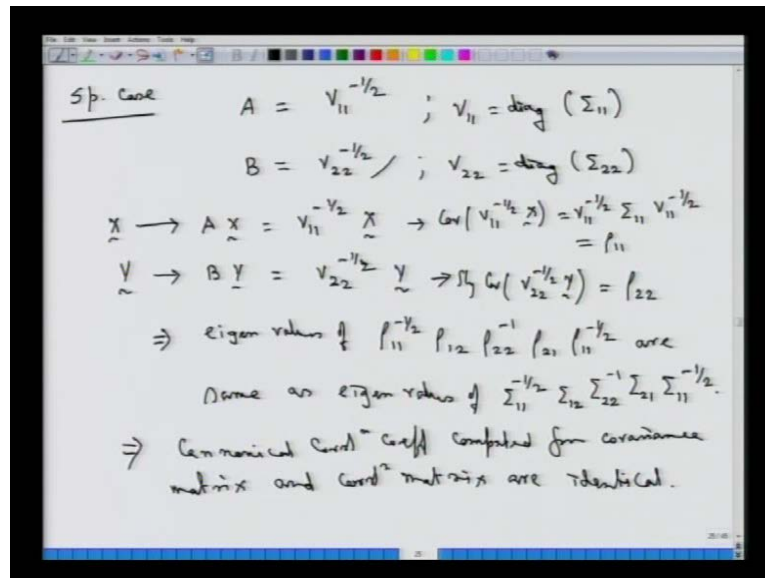 File Edit View Insert Actions Tools Help
Sp. Case A = V₁₁^{-1/2} ; V₁₁ = diag (Σ₁₁)
B = V₂₂^{-1/2} ; V₂₂ = diag (Σ₂₂)
X → A X = V₁₁^{-1/2} X → Cov(V₁₁^{-1/2} X) = V₁₁^{-1/2} Σ₁₁ V₁₁^{-1/2}
= ρ₁₁
Y → B Y = V₂₂^{-1/2} Y → Cov(V₂₂^{-1/2} Y) = ρ₂₂
⇒ eigen values of ρ₁₁^{-1/2} ρ₁₂ ρ₂₂^{-1} ρ₂₁ ρ₁₁^{-1/2} are
same as eigen values of Σ₁₁^{-1/2} Σ₁₂ Σ₂₂^{-1} Σ₂₁ Σ₁₁^{-1/2}.
⇒ Cannonical Corrⁿ Coeff computed from covariance
matrix and Corrⁿ matrix are identical.
25